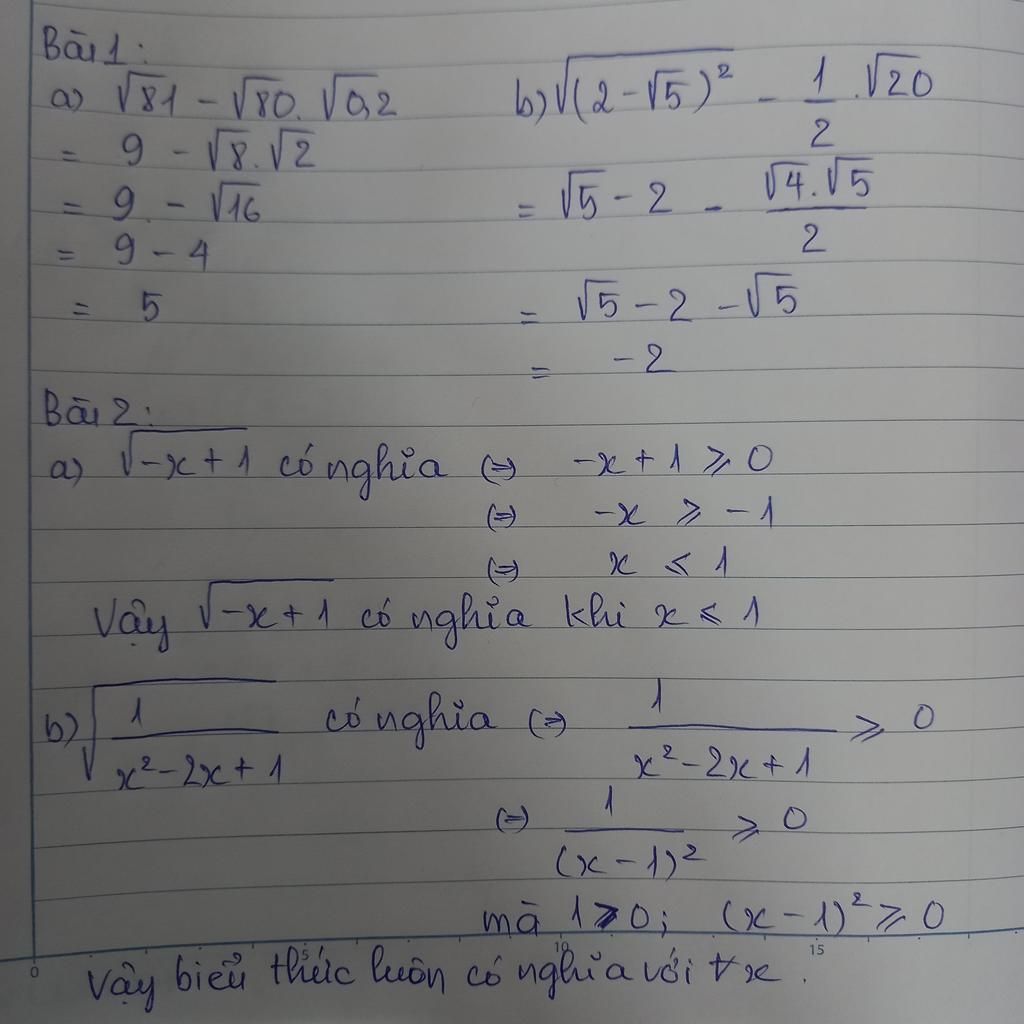 Bài 1:
a) √81 - √80. √0,2 b) √(2-√5)² - 1/2 .√20
= 9 - √8.√2
= 9 - √16 = √5 - 2 - √4.√5/2
= 9 - 4
= 5 = √5 - 2 - √5
= -2
Bài 2:
a) √-x+1 có nghĩa (⇒) -x + 1 ⩾ 0
(⇒) -x ⩾ -1
(⇒) x ⩽ 1
Vậy √-x+1 có nghĩa khi x ⩽ 1
b) √1/x²-2x+1 có nghĩa (⇒) 1/x²-2x+1 ⩾ 0
(⇒) 1/(x-1)² ⩾ 0
mà 1>0; (x-1)² ⩾ 0
0 5 10 15
Vậy biểu thức luôn có nghĩa với ∀x.